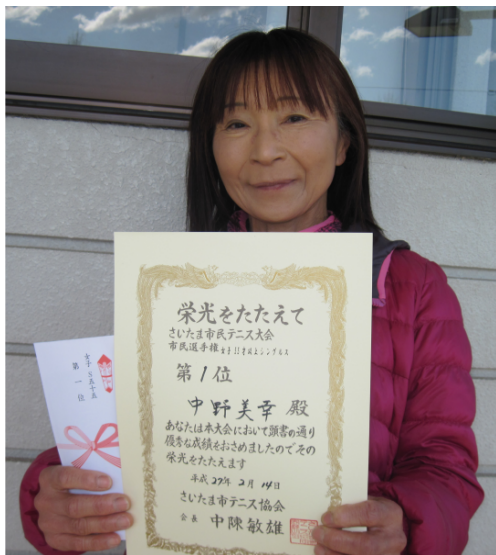 栄光をたたえて
さいたま市民テニス大会
市民選手権 女子55才以上シングルス
第1位
中野美幸 殿
あなたは本大会において頭書の通り
優秀な成績をおさめましたのでその
栄光をたたえます
平成27年2月14日
さいたま市テニス協会
会長 中陳敏雄
女子 S五十五
第一位